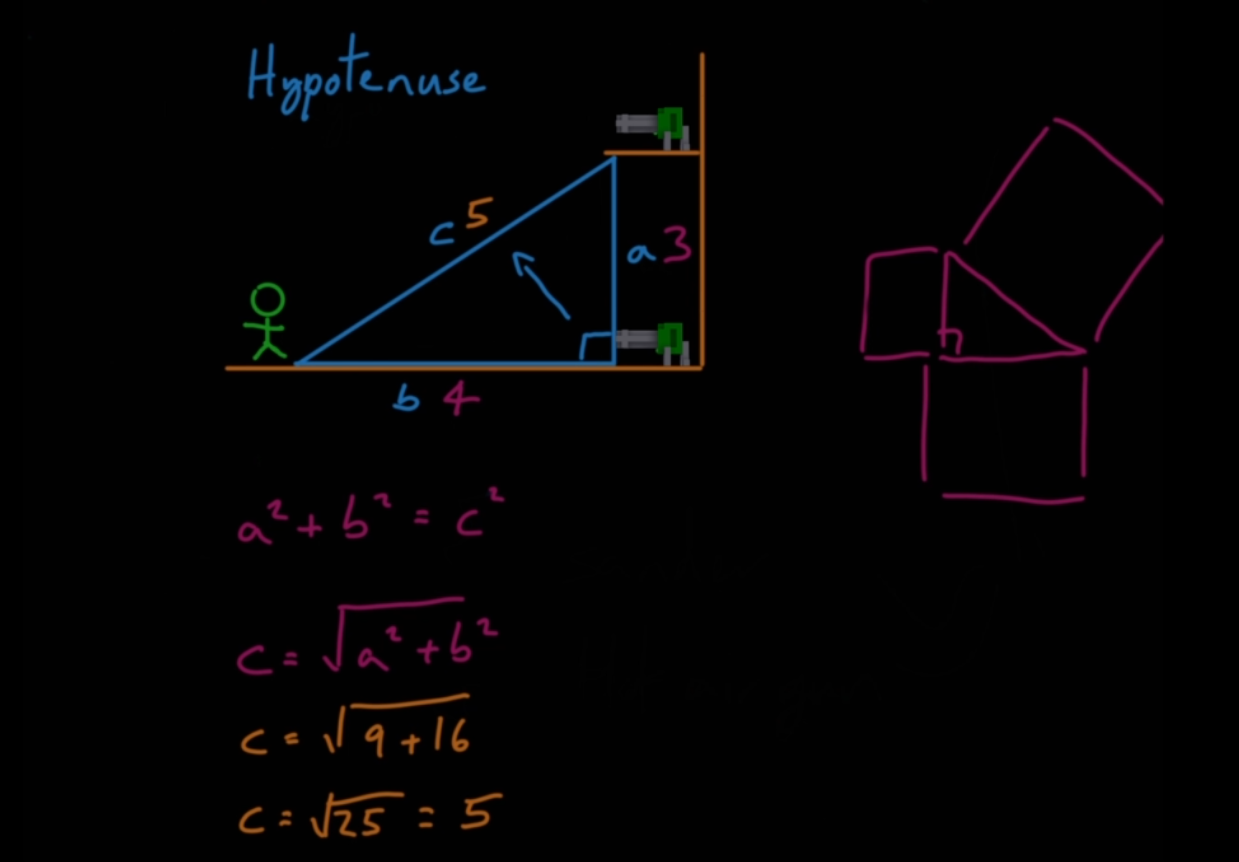 Hypotenuse
c 5
a 3
b 4
a² + b² = c²
c = √a² + b²
c = √9 + 16
c = √25 = 5